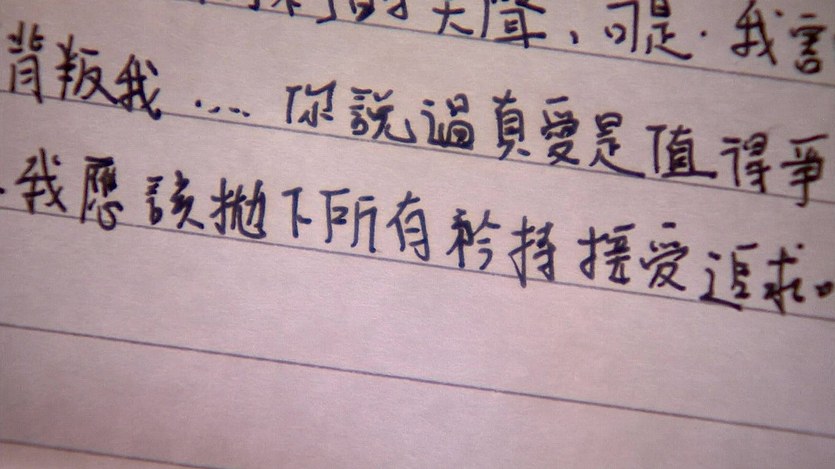 的大聲，可是．我害
背叛我．．．．你說過真愛是值得爭
．我應該拋下所有矜持接受追求。